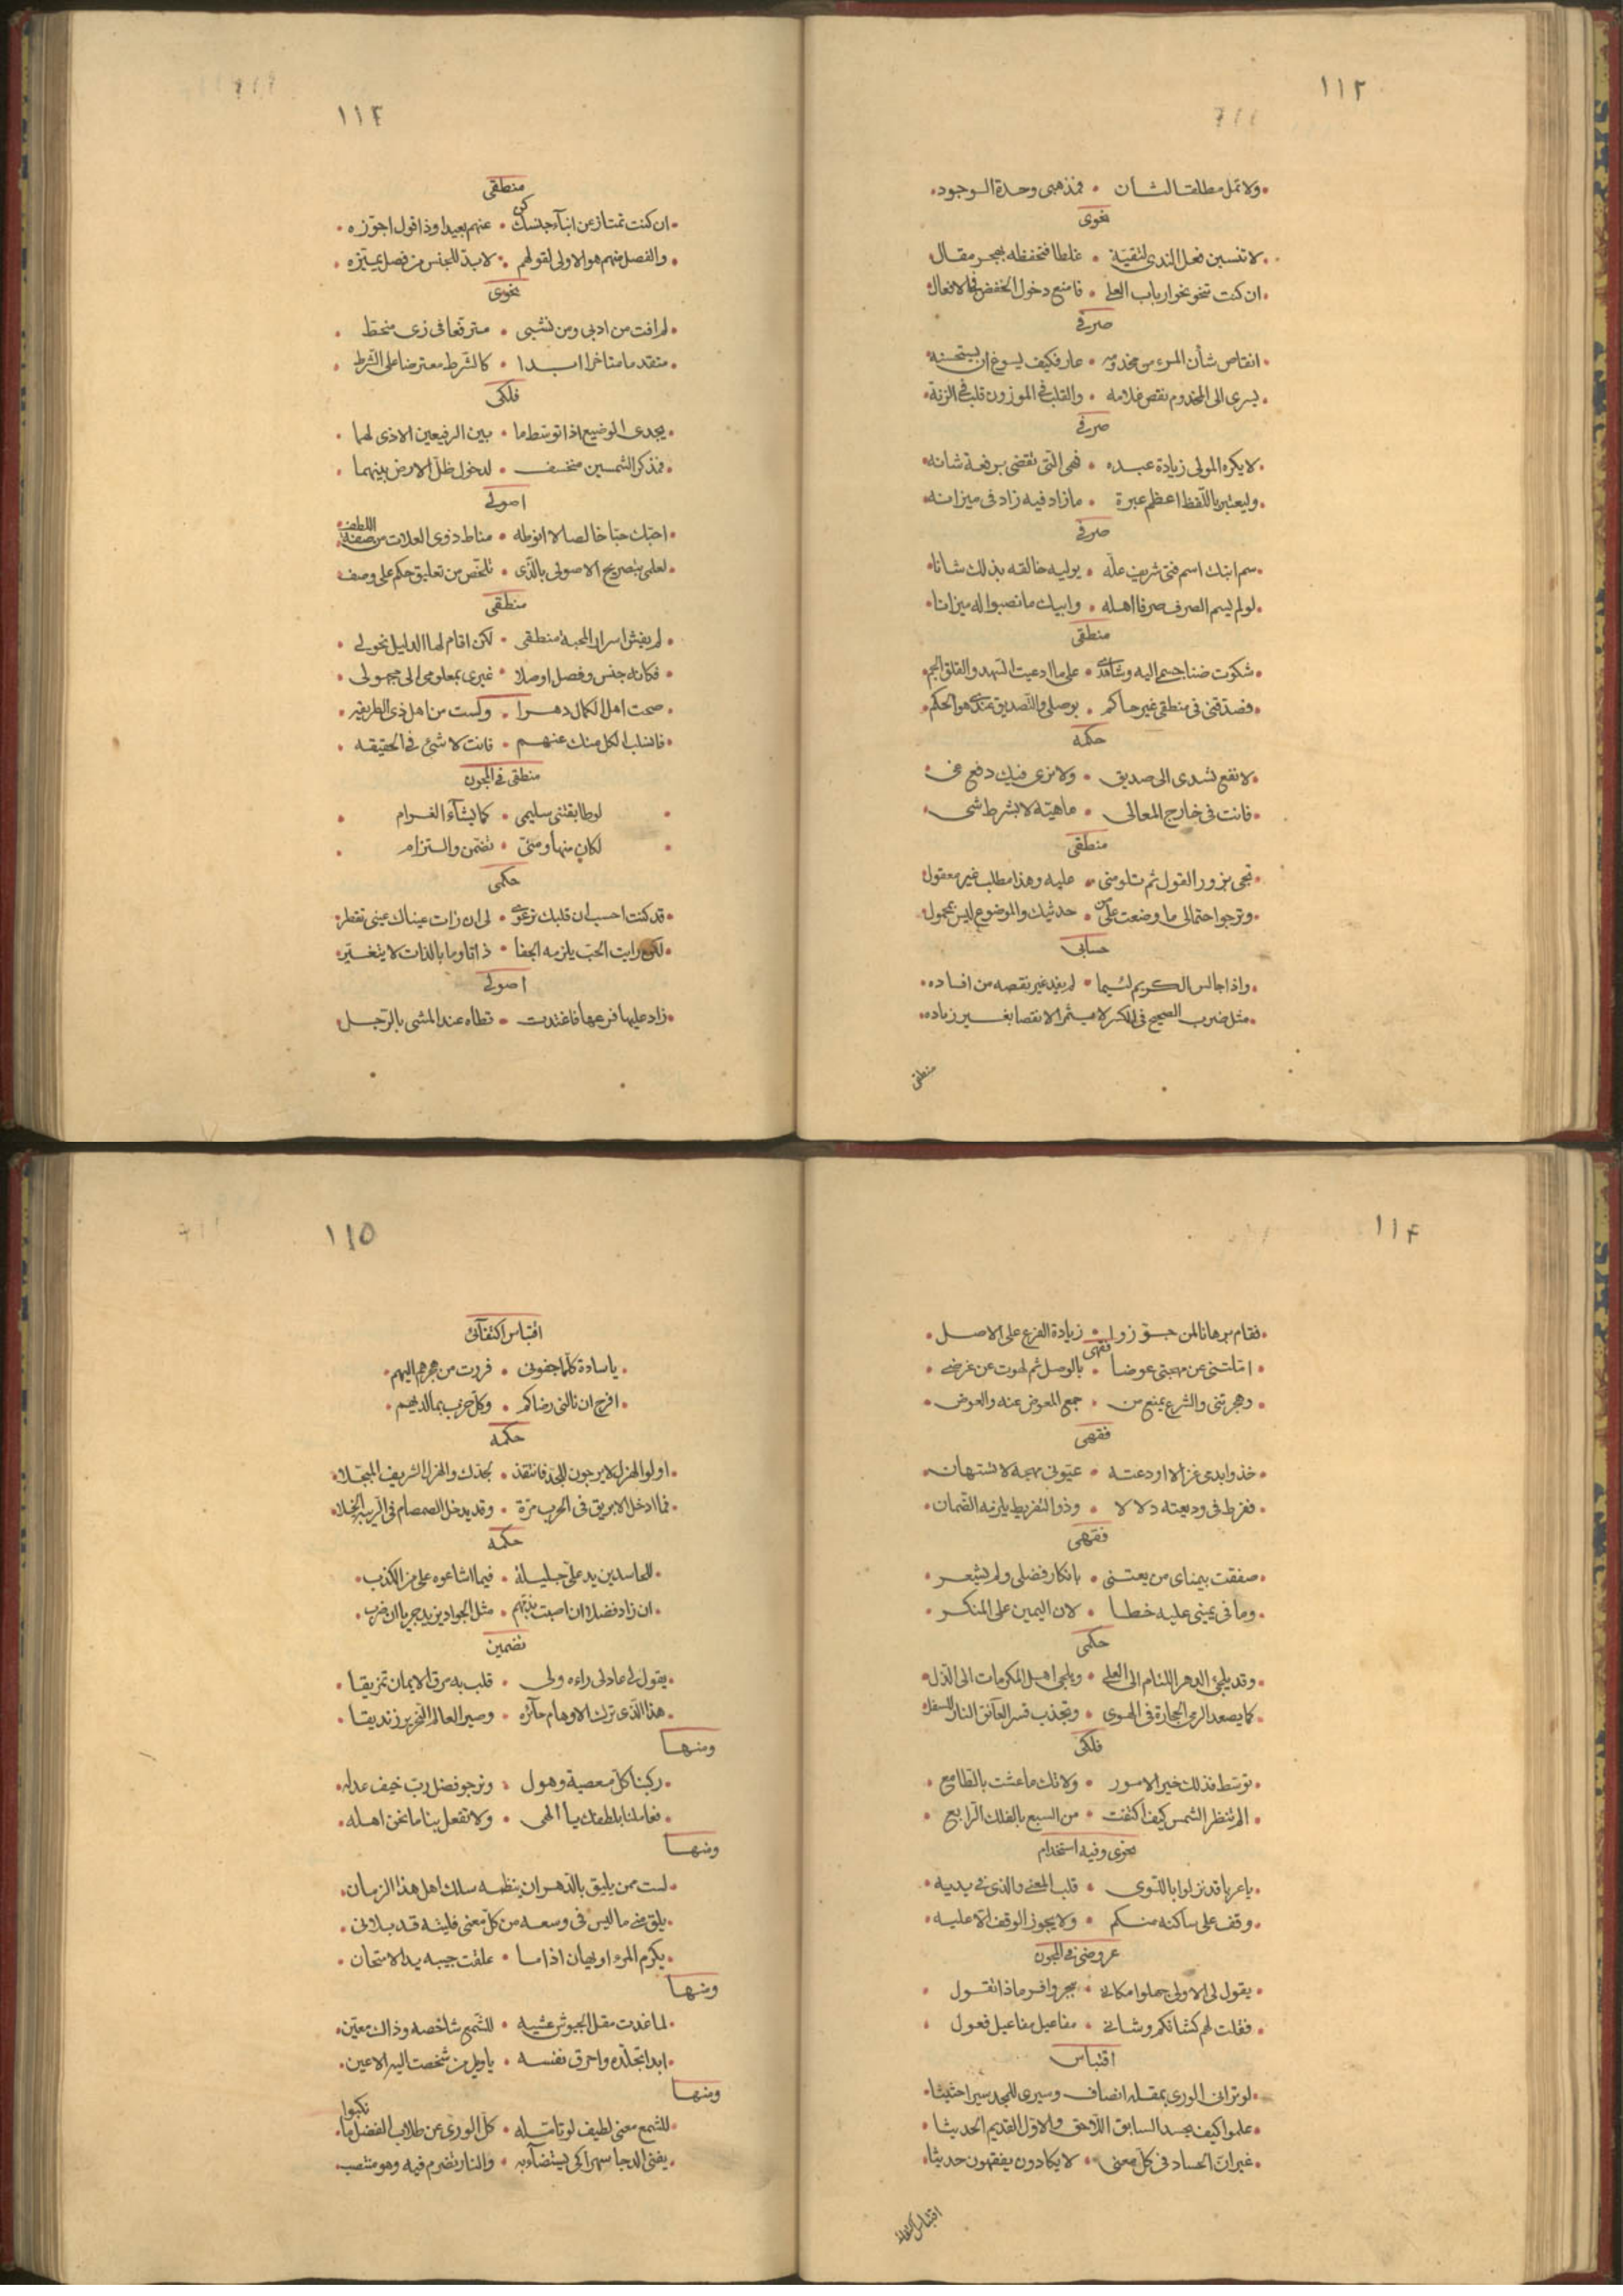 ١١٢
ولا تمل مطلقا لشان • فمذهبى وحدة الوجود
نحوى
لا تنسبن فعل الندى لنقية • غلطا فتخفظه بهجر مقال
ان كنت تنحو نحو ارباب العلى • فامنع دخول الخفض فى الافعال
صرفى
انقاص شأن المرء من مخدومه • عار فكيف يسوغ ان يستحسنه
يسرى الى المخدوم نقص غلامه • والقلب فى الموزون قلب فى الزنة
صرفى
لا يكره المولى زيادة عبده • فهى التى تقضى برفعة شانه
وليعتبر باللفظ اعظم عبرة • ما زاد فيه زاد فى ميزانه
صرفى
سم ابنك اسم فتى شريف عله • يوليه خالقه بذلك شانا
لو لم يسم الصرف صرفا اهله • وابيك ما نصبوا له ميزانا
منطقى
شكوت ضنا جسمى اليه وشاهدى • على ما ادعيت السهد والقلق الجم
فصدقنى فى منطقى غير حاكم • بوصلى والتصديق عندى هو الحكم
حكمه
لا نفع تسدى الى صديق • ولا نرى فيك دفع غى
فانت فى خارج المعالى • ماهية لا بشرط شى
منطقى
تجى بزور القول ثم تلومنى • عليه وهذا مطلب غير معقول
وترجو احتمالى ما وضعت على • حديثك والموضوع ليس بمحمول
حسابى
واذا جالس الكريم لئيما • لم يفد غير نقصه من افساده
مثل ضرب الصحيح فى الكسر لا يثمر الا نقصا بغير زياده
منطقى
١١٣
منطقى
ان كنت تمتاز عن ابناء جنسك كن • عنهم بعيدا وذا قول اجوزه
والفصل منهم هو الاولى لقولهم • لا بد للجنس من فصل يميزه
نحوى
لم افت من ادبى ومن نشبى • مترفعا فى زى منحط
متقدما متاخرا ابدا • كالشرط معترضا على الشرط
فلكى
يجدى الوضيع اذا توسط ما • بين الرفيعين الاذى لهما
فمذكر الشمسين منخسف • لدخول ظل الارض بينهما
اصولى
احبك حبا خالصا لا انوطه • مناط ذوى العلات من صفة اللطف
لعلمى بتصريح الاصولى بالذى • تلخص من تعليق حكم على وصف
منطقى
لم يفش اسرار المحبة منطقى • لكن اقام لها الدليل نحولى
فكانه جنس وفصل اوصلا • غيرى بمعلومى الى مجهولى
صحت اهل الكمال دهرا • ولست من اهل ذى الطريقه
فانسلب الكل منك عنهم • فانت لا شئ فى الحقيقه
منطقى فى المجون
لو طابقتنى سليمى • كما يشآء الغرام
لكان منها ومنى • تضمن والتزام
حكمى
قد كنت احسب ان قلبك نرعوى • لى ان رات عيناك عينى تقطر
لكن رايت الحب يلزمه الجفا • ذاتا وما بالذات لا يتغير
اصولى
زاد عليها فرعها فاغتدت • تطاه عند المشى بالرجل
١١٤
فقام برهانا لمن جوزوا • زيادة الفرع على الاصل
فقهى
امّلتنى عن مهجتى عوضا • بالوصل ثم لهوت عن غرضى
وهجرتنى والشرع يمنع من • جمع المعوض عنه والعوض
فقهى
خذوا بدمى غزالا اودعته • عيونى مهجة لا تستهان
ففرط فى وديعته دلالا • وذو التفريط يلزمه الضمان
فقهى
صفقت بيمناى من يعتنى • بانكار فضلى ولم يشعر
وما فى يمينى عليه خطا • لان اليمين على المنكر
حكمى
وقد يلجئ الدهر اللئام الى العلى • ويلجى اهل المكرمات الى الذل
كما يصعد الرمى الحجارة فى الهوى • وتجذب قسر العآئق النار للسفل
فلكى
توسط فذلك خير الامور • ولا تك ما عشت بالطامع
الم تنظر الشمس كيف اكتفت • من السبع بالفلك الرابع
نحوى وفيه استخدام
يا عربا قد نزلوا باللوى • قلب المعنى والذى فى يديه
وقف على ساكنه منكم • ولا يجوز الوقف الا عليه
عروضى فى المجون
يقول لى الاولى جهلوا مكانى • ببحر وافر ماذا تقول
فقلت لهم كشانكم وشانى • مفاعيل مفاعيل فعول
اقتباس
لو ترانى الورى بمقلة انصاف وسيرى للمجد سيرا حثيثا
علموا كيف يحسد السابق اللاحق والاول القديم الحديثا
غير ان الحساد فى كل معنى • لا يكادون يفقهون حديثا
اقتباس اكتفآئى
١١٥
اقتباس اكتفآئى
يا سادة كلما جفونى • فررت من هجرهم اليهم
افرح ان نالنى رضاكم • وكل حزب بما لديهم
حكمه
اولو الهزل لا يرجون للجد فانتقذ • بجدك والهزل الشريف المبجلا
فما ادخل الابريق فى الحرب مرة • وقد يدخل الصمصام فى الريبة الخلا
حكمه
للحاسدين يد على جليلة • فيما اشاعوه على من الكذب
ان زاد فضلى ان اصبت بذمهم • مثل الجواد يزيد جريا ان ضرب
تضمين
يقول لى عاذلى راءه ولى • قلب به مرق الايمان تمزيقا
هذا الذى ترك الاوهام حآئرة • وصير العالم النحرير زنديقا
ومنها
ركبنا كل معصية وهول • ونرجو فضل رب خيف عدله
فعاملنا بلطفك يا الهى • ولا تفعل بنا ما نحن اهله
ومنها
لست ممن يليق بالدهر ان ينظمه سلك اهل هذا الزمان
يلق منى ما ليس فى وسعه من كل معنى فليته قد بلانى
يكرم المرء او يهان اذا ما • علقت جيبه يد الامتحان
ومنها
لما غدت مقل الجيوش عشية • للشمع شاخصة وذاك معين
ابدا تجلده واحرق نفسه • يا ويل من شخصت اليه الاعين
ومنها
للشمع معنى لطيف لو تامله • كل الورى عن طلاب الفضل ما نكبوا
يفنى الدجا سهرا كى يستضآء به • والنار تضرم فيه وهو منتصب